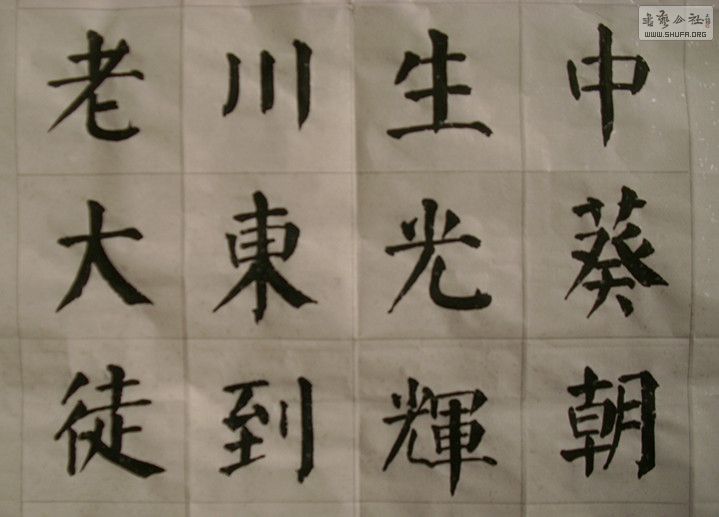 中葵朝
生光輝
川東到
老大徒
书艺公社
WWW.SHUFA.ORG